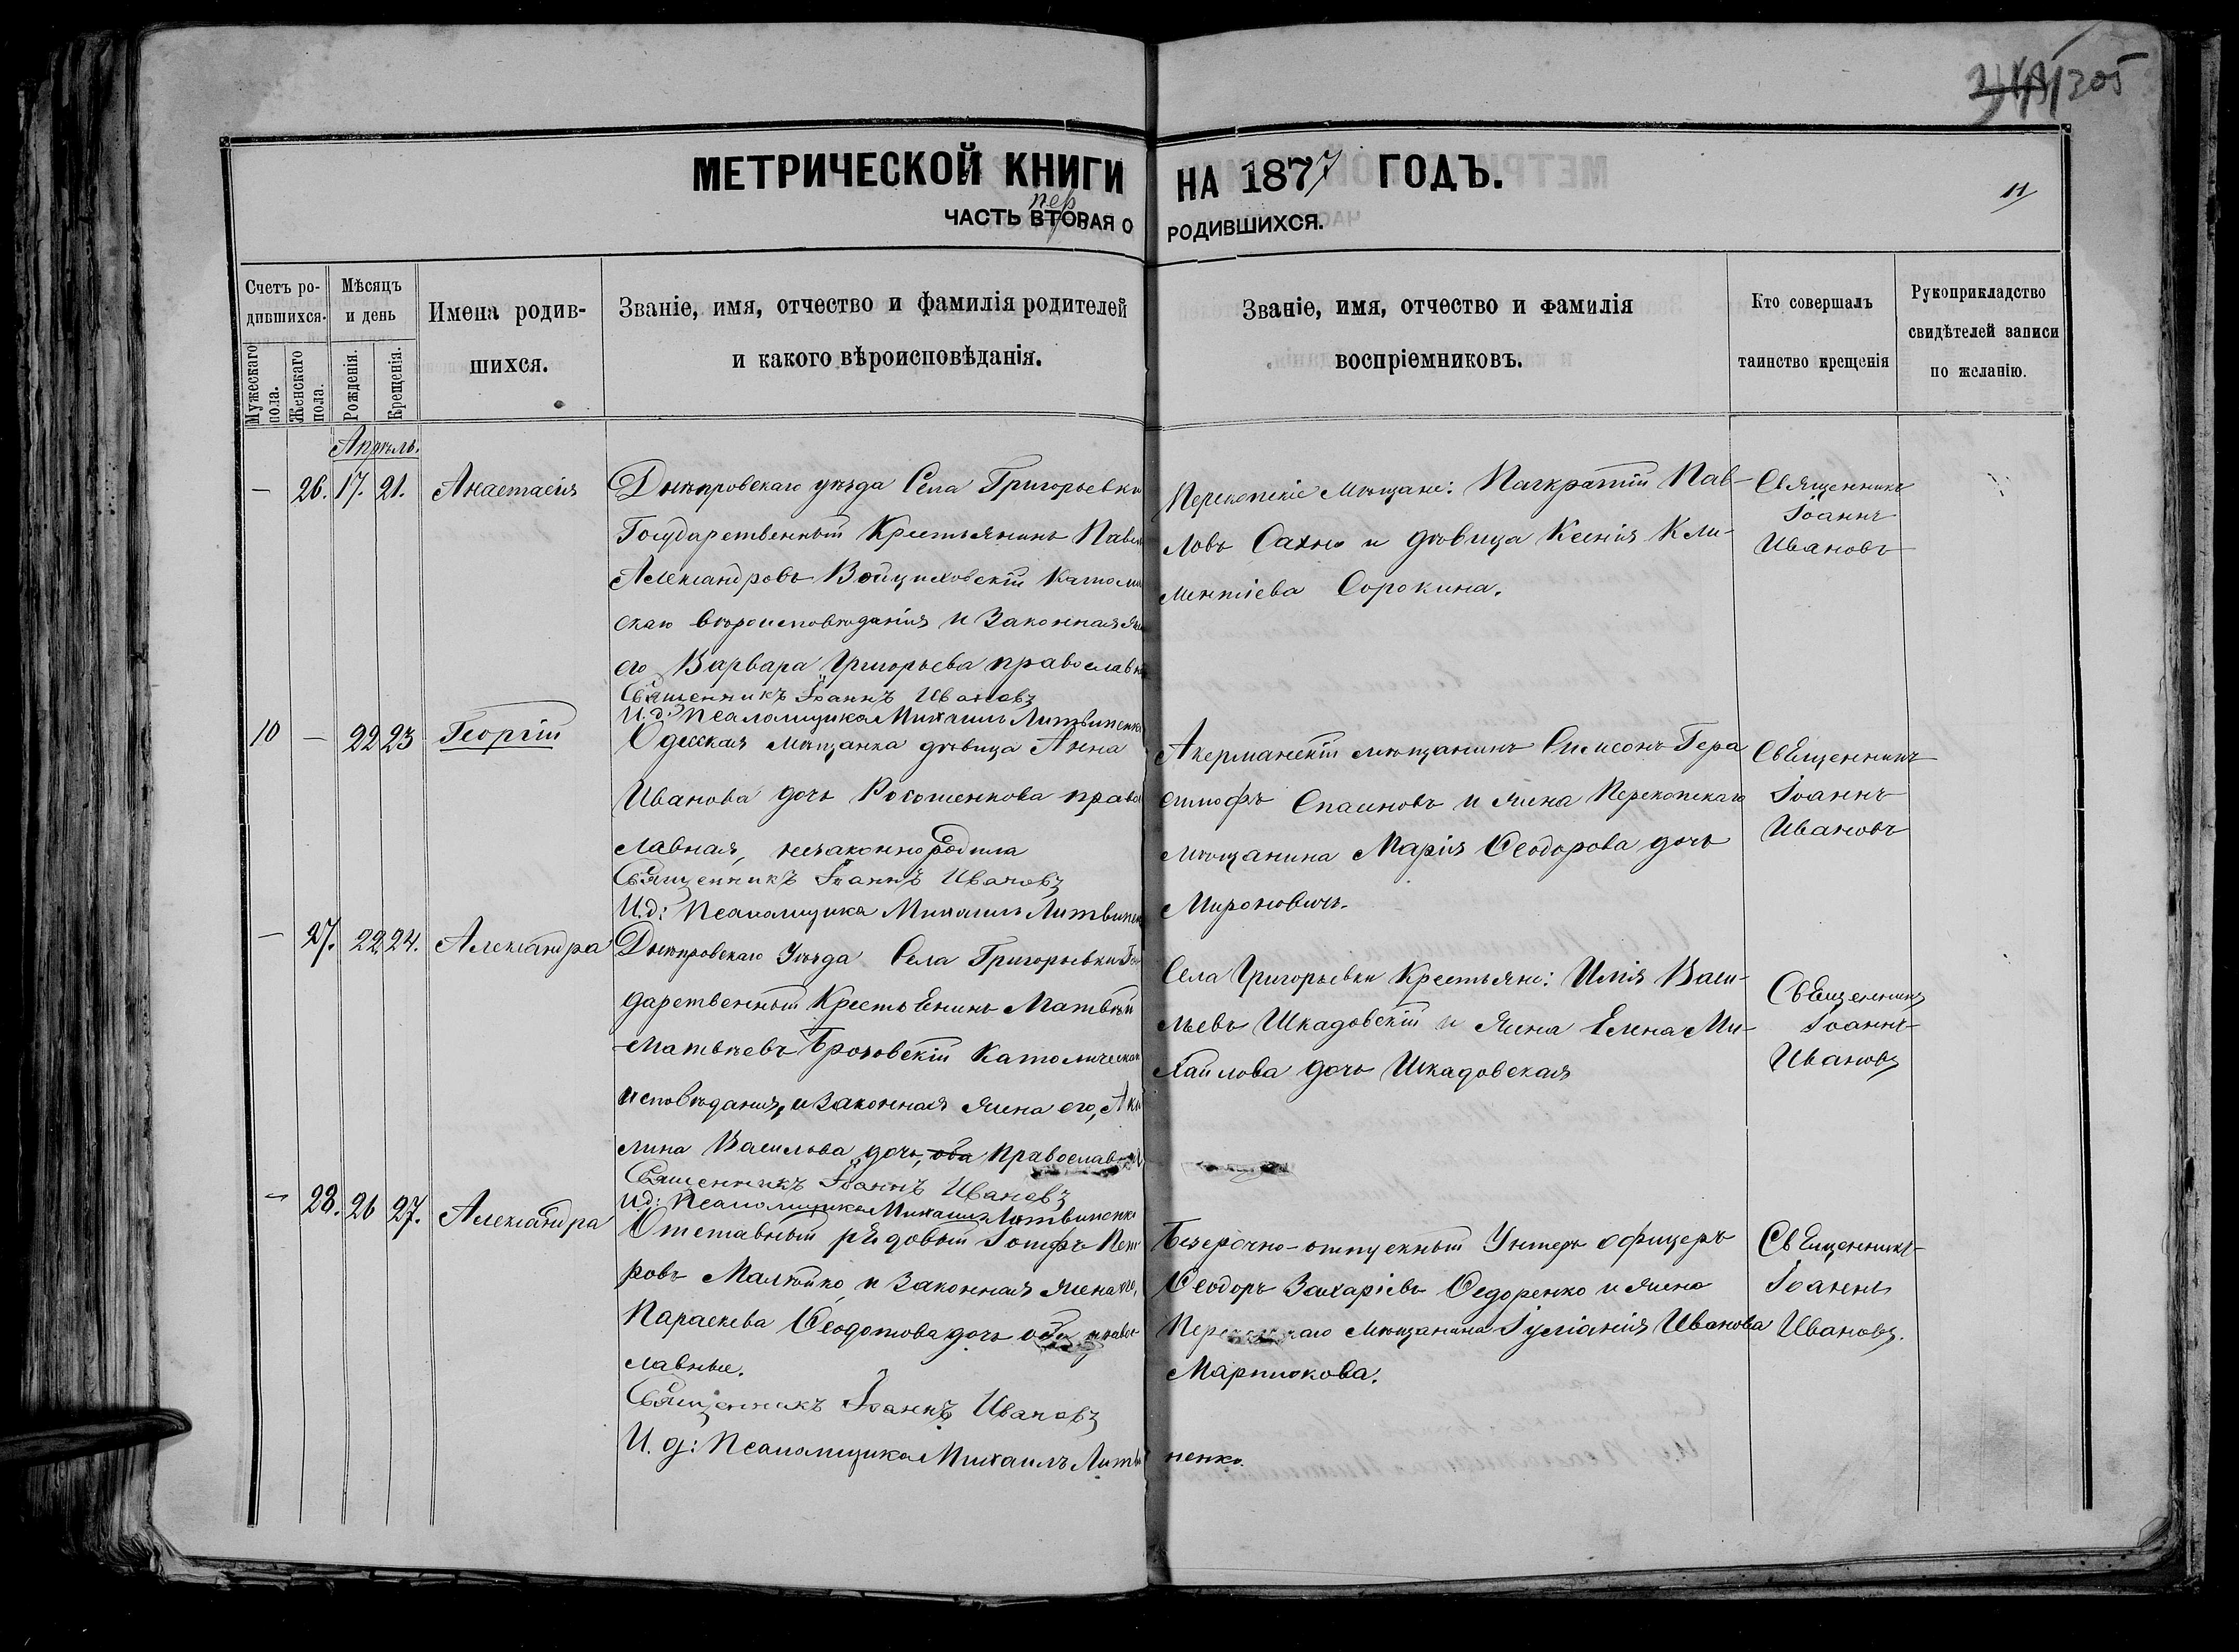 305
МЕТРИЧЕСКОЙ КНИГИ НА 1877 ГОДЪ.
11
пер
ЧАСТЬ ВТОРАЯ О РОДИВШИХСЯ.
Счетъ ро-
дившихся.
Мужескаго пола.
Женскаго пола.
Мѣсяцъ
и день
Рожденія.
Крещенія.
Имена родив-
шихся.
Званіе, имя, отчество и фамилія родителей
и какого вѣроисповѣданія.
Званіе, имя, отчество и фамилія
воспріемниковъ.
Кто совершалъ
таинство крещенія
Рукоприкладство
свидѣтелей записи
по желанію.
Апрѣль.
— 26. 17. 21. Анастасія
Днѣпровскаго уѣзда Села Григорьевки
Государственный Крестьянинъ Павел
Александровъ Войциховскій Католи
скаго вѣроисповѣданія и Законная же
его Варвара Григорьева православн
Священникъ Іоаннъ Ивановъ
И.д: Псаломщика Михаилъ Литвиненко
Перекопскіе Мѣщане: Панкратій Пав-
ловъ Сахно и дѣвица Ксенія Кли-
ментіева Сорокина.
Священникъ
Іоаннъ
Ивановъ
10 — 22 23 Георгій
Одесская мѣщанка дѣвица Анна
Иванова дочь Рогошенкова право
славная, незаконно родила
Священникъ Іоаннъ Ивановъ
И.д: Псаломщика Михаилъ Литвинен
Акерманскій мѣщанинъ Симеонъ Гера
симофъ Спаиновъ и жена Перекопскаго
мѣщанина Марія Ѳеодорова дочь
Мироновичъ.
Священникъ
Іоаннъ
Ивановъ
— 27. 22 24. Александра
Днѣпровскаго Уѣзда Села Григорьевки Го
дарственный Крестьянинъ Матвѣй
Матвѣевъ Брозовскій Католическаго
исповѣданія, и Законная жена его, Аки
лина Васильва дочь, оба православной
Священникъ Іоаннъ Ивановъ
И.д: Псаломщика Михаилъ Литвиненко
Села Григорьевки Крестьяне: Илія Васи-
льевъ Шкадовскій и жена Елена Ми-
хайлова дочь Шкадовская
Священникъ
Іоаннъ
Ивановъ
— 28. 26 27. Александра
Отставный рядовый Іосифъ Пет
ровъ Малюйко и Законная жена его,
Параскева Ѳеодотова дочь оба правос
лавные.
Священникъ Іоаннъ Ивановъ
И. д: Псаломщика Михаилъ Литви ненко.
Безсрочно-отпускный Унтеръ офицеръ
Ѳеодоръ Захаріевъ Ѳедоренко и жена
Перекопскаго мѣщанина Іуліанія Иванова
Мартикова.
Священникъ
Іоаннъ
Ивановъ.